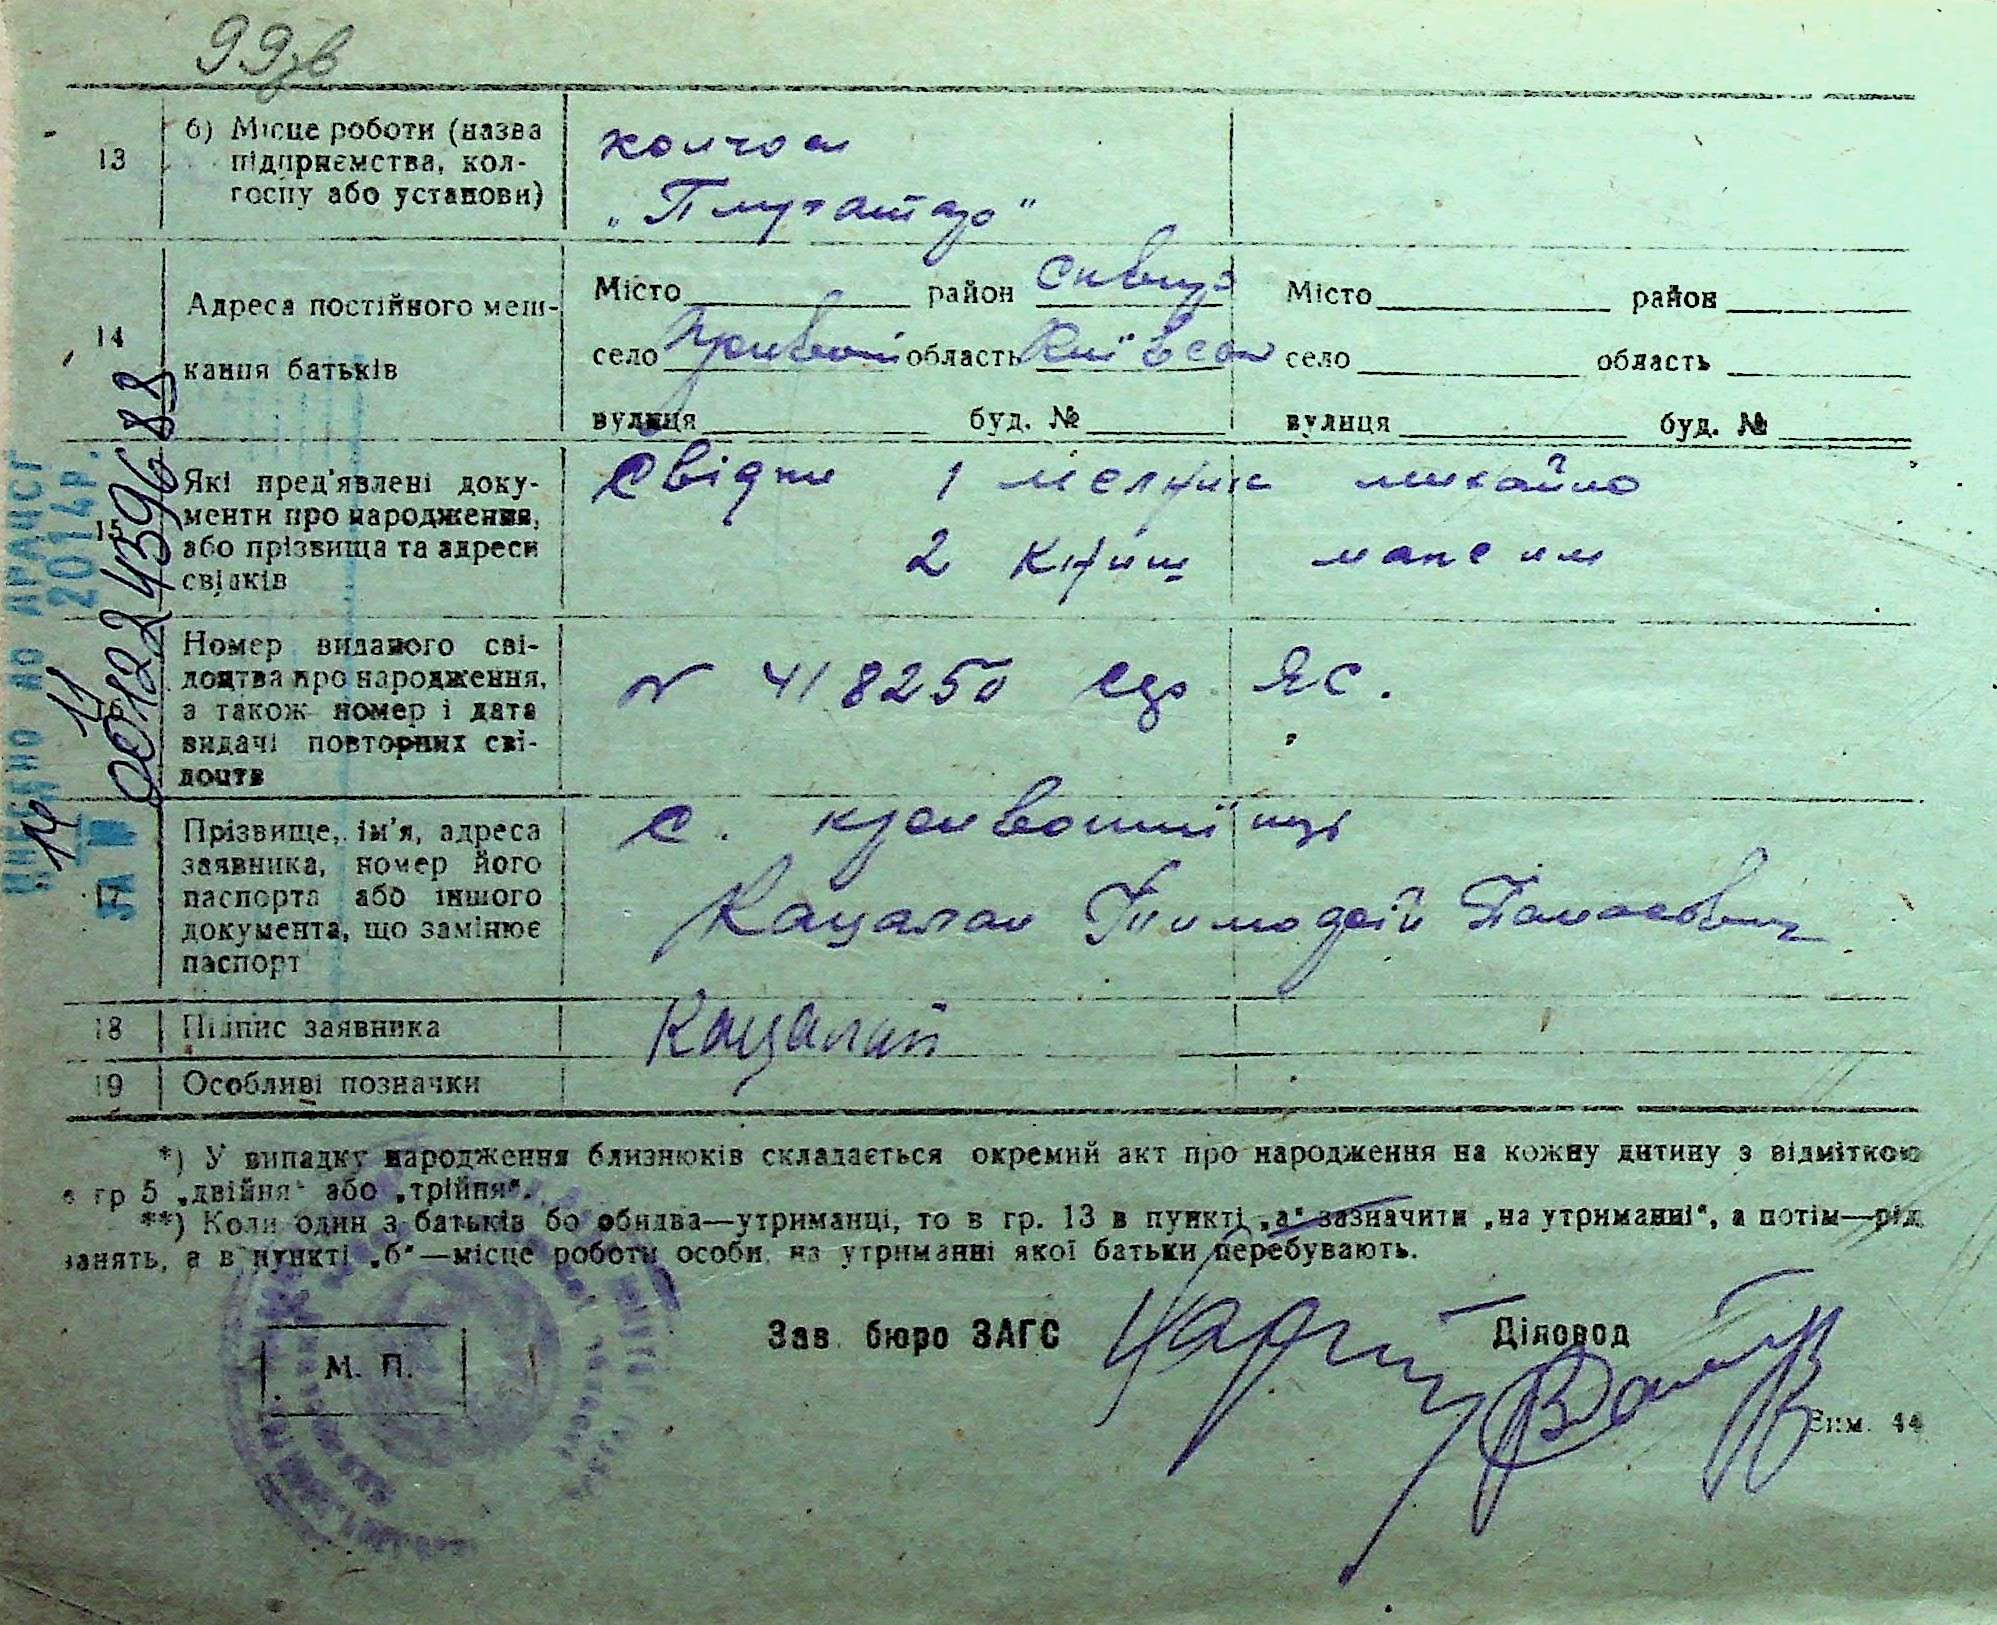 99зв
13
б) Місце роботи (назва
підприємства, кол-
госпу або установи)
колгосп
"Плугатар"
14
Адреса постійного меш-
кання батьків
Місто район Сквирз
село область Київськ
вулиця буд. №
Місто район
село область
вулиця буд. №
15
Які пред'явлені доку-
менти про народження,
або прізвища та адреси
свідків
Свідки 1 Мелник Михайло
2 Книш Максим
16
Номер виданого сві-
доцтва про народження,
а також номер і дата
видачі повторних сві-
доцтв
N 418250 ЯС.
17
Прізвище, ім'я, адреса
заявника, номер його
паспорта або іншого
документа, що замінює
паспорт
с.
Кацалап Тимофій Панасович
18
Підпис заявника
Кацалап
19
Особливі позначки
*) У випадку народження близнюків складається окремий акт про народження на кожну дитину з відміткою
в гр 5 „двійня" або „трійня".
**) Коли один з батьків бо обидва—утриманці, то в гр. 13 в пункті „а" зазначити „на утриманні", а потім—рід
занять, а в пункті „б"—місце роботи особи, на утриманні якої батьки перебувають.
М. П.
Зав. бюро ЗАГС
Діловод
Зим. 44
ВНЕСЕНО ДО ДРАЦСГ
"14" 11 2014р.
ЗА № 00122439688